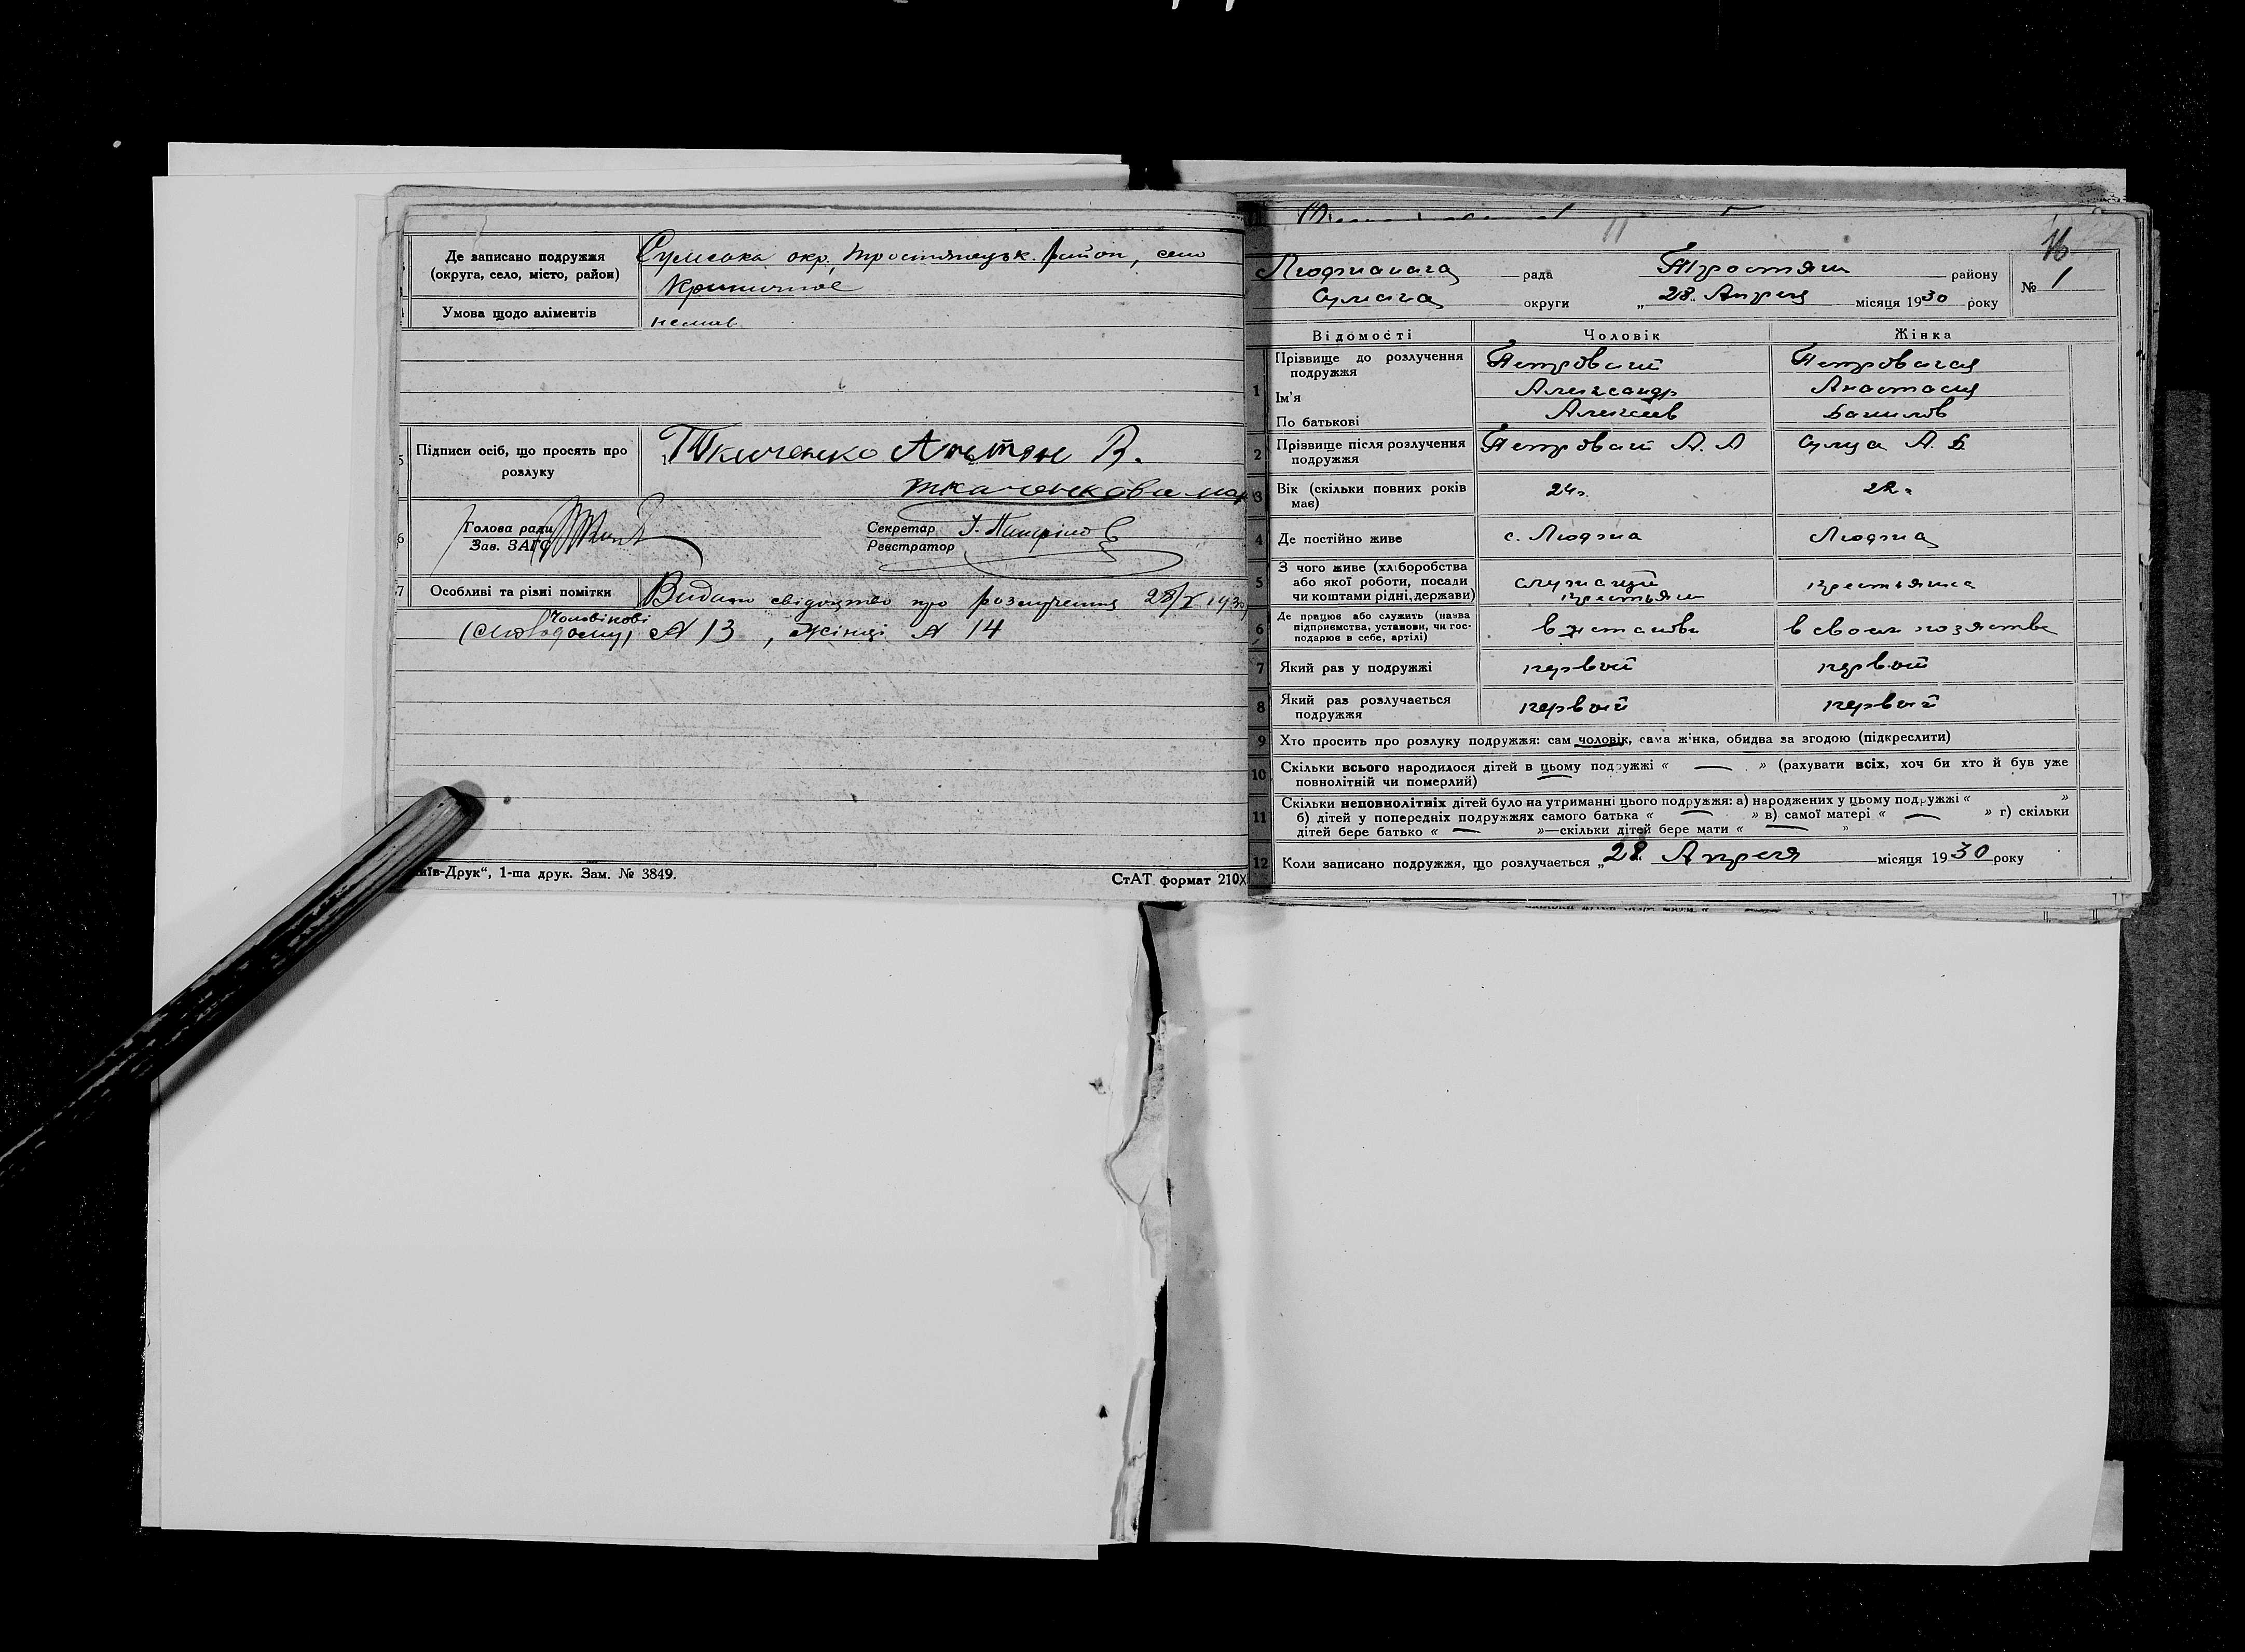 Де записано подружжя
(округа, село, місто, район)
Сумська окр, Тростянецьк. район, село
Криничное
Умова щодо аліментів
немає
5 Підписи осіб, що просять про
розлуку
Ткаченко Антон В.
Ткаченкова
6 Голова ради
Зав. ЗАГС
Секретар
Реєстратор
7 Особливі та різні помітки
Видано свідоцтво про розлучення 28/V 1930
Чоловікові
№ 13, Жінці № 14
Київ-Друк“, 1-ша друк. Зам. № 3849.
СтАТ формат 210X
16
рада Тростян району
округи „28“ Апреля місяця 1930 року
№ 1
Відомості Чоловік Жінка
1 Прізвище до розлучення
подружжя
Петровский Петровская
Ім'я Александр Анастасия
По батькові Алексеев Данилов
2 Прізвище після розлучення
подружжя
Петровский А. А А. Д
3 Вік (скільки повних років
має)
24 г. 22 г
4 Де постійно живе с. Люджа Люджа
5 З чого живе (хліборобства
або якої роботи, посади
чи коштами рідні, держави)
служащий
крестьян
крестьянка
6 Де працює або служить (назва
підприємства, установи, чи гос-
подарює в себе, артілі)
в установі в своем хозястве
7 Який раз у подружжі первой первой
8 Який раз розлучається
подружжя
первой первой
9 Хто просить про розлуку подружжя: сам чоловік, сама жінка, обидва за згодою (підкреслити)
10 Скільки всього народилося дітей в цьому подружжі « — » (рахувати всіх, хоч би хто й був уже
повнолітній чи померлий)
11 Скільки неповнолітніх дітей було на утриманні цього подружжя: а) народжених у цьому подружжі « »
б) дітей у попередніх подружжях самого батька « — » в) самої матері « — » г) скільки
дітей бере батько « — »—скільки дітей бере мати « — »
12 Коли записано подружжя, що розлучається „28“ Апреля місяця 1930 року